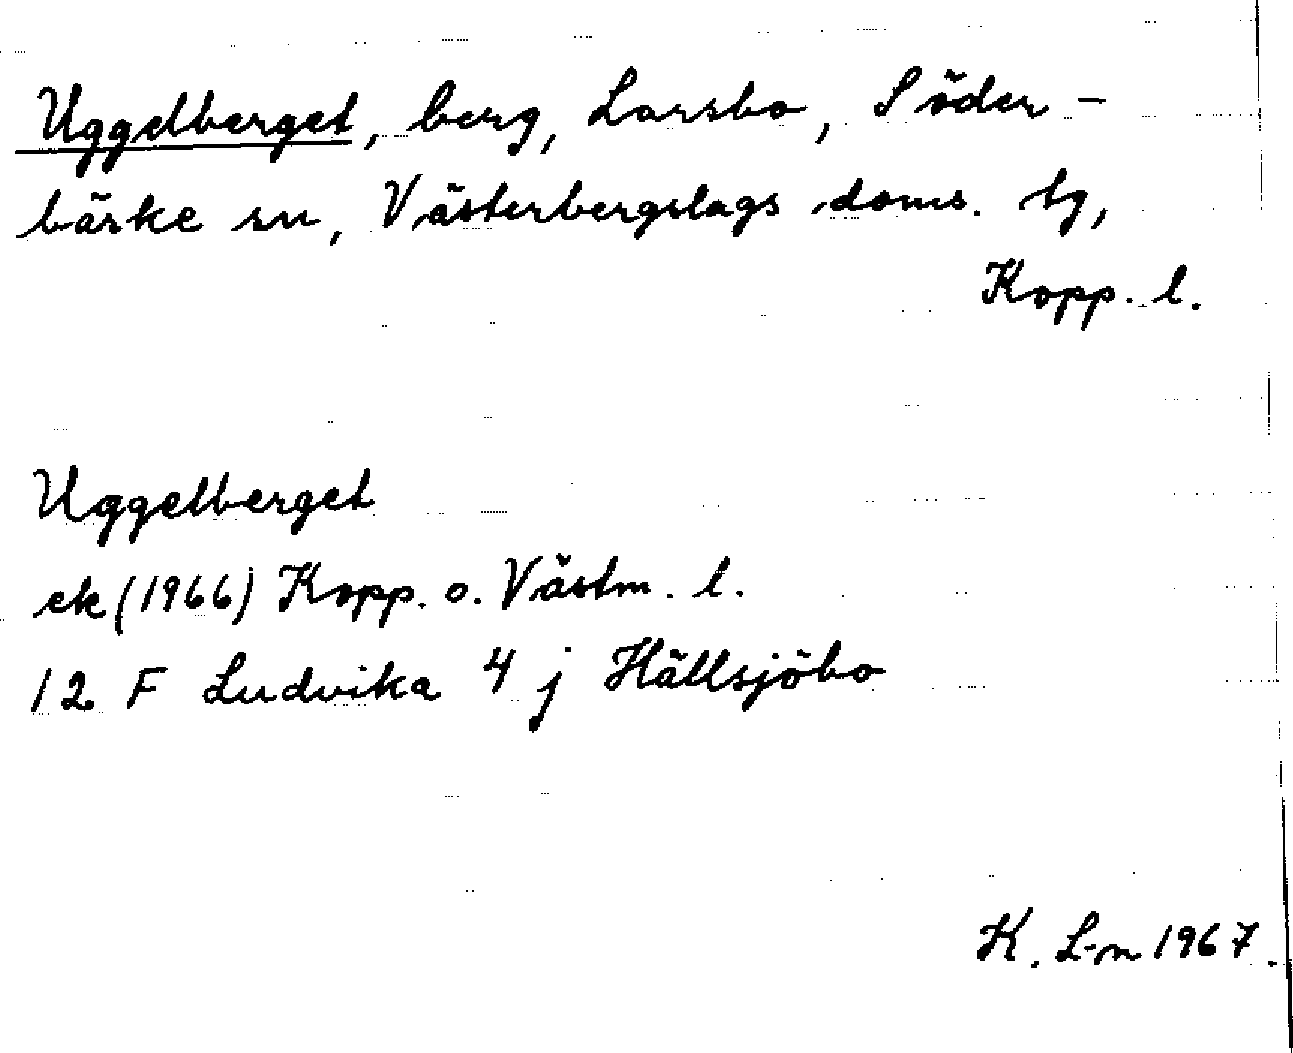 Uggelberget, berg, Larsbo, Söder-
bärke sn, Västerbergslags doms. tg,
Kopp. l.
Uggelberget
ek (1966) Kopp. o. Västm. l.
12 F Ludvika 4 j Hällsjöbo
K. L-n 1967.